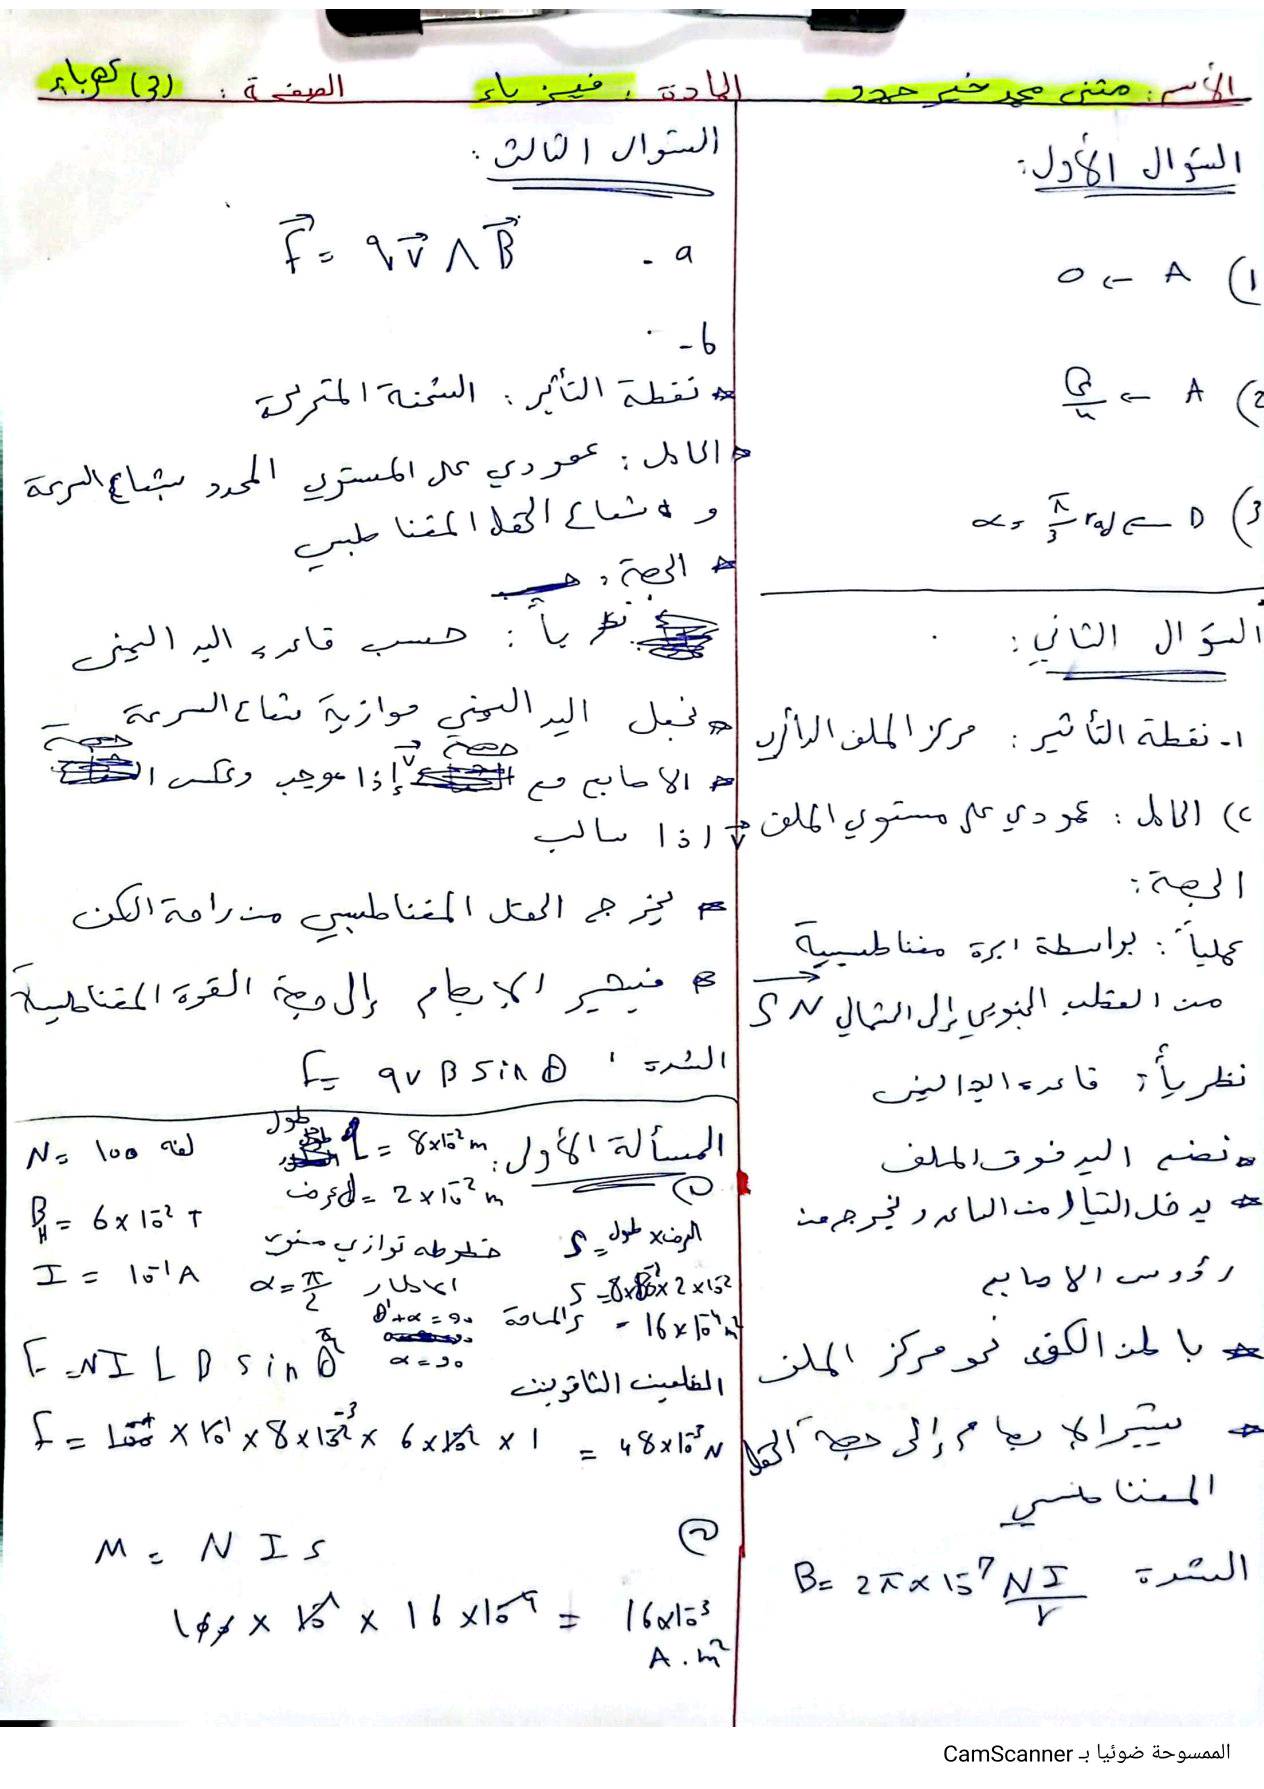 الأسم: مثنى محمد خير حمود
المادة: فيزياء
الصفحة: (3) كهرباء
السؤال الأول:
1) A ← 0
2) A ←
3) D ← α = π/3 rad
السؤال الثاني:
1- نقطة التأثير: مركز الملف الدائري
2) الحامل: عمودي على مستوي الملف
الجهة:
عملياً: بواسطة ابرة مغناطيسية
من القطب الجنوبي إلى الشمالي SN
نظرياً: قاعدة اليد اليمنى
نضع اليد فوق الملف
يدخل التيار من الساعد ويخرج من
رؤوس الاصابع
باطن الكف نحو مركز الملف
يشير الابهام إلى جهة الحقل
المغناطيسي
الشدة B = 2π × 10⁻⁷ NI/r
السؤال الثالث:
a - F = qv ∧ B
b -
نقطة التأثير: الشحنة المتحركة
الحامل: عمودي على المستوي المحدد بشعاع السرعة
و شعاع الحقل المغناطيسي
الجهة:
نظرياً: حسب قاعدة اليد اليمنى
نجعل اليد اليمنى موازية شعاع السرعة
الاصابع مع جهة v إذا موجب وعكس جهة
v اذا سالب
يخرج الحقل المغناطيسي من راحة الكف
فيشير الابهام إلى جهة القوة المغناطيسية
الشدة F = qvB sin θ
المسألة الأولى:
طول L = 8×10⁻² m
N = 100 لفة
عرض d = 2×10⁻² m
B_H = 6×10⁻² T
I = 10⁻¹ A
خطوطه توازي مستوى
الاطار α = π/2
θ' + α = 90
α = 90
①
S = العرض × طول
S = 8×10⁻² × 2×10⁻²
المساحة = 16×10⁻⁴ m²
الضلعين الشاقوليين
F = NILB sin θ
F = 100 × 10⁻¹ × 8×10⁻² × 6×10⁻² × 1 = 48×10⁻³ N
②
M = NIS
100 × 10⁻¹ × 16×10⁻⁴ = 16×10⁻³
A.m²
الممسوحة ضوئيا بـ CamScanner